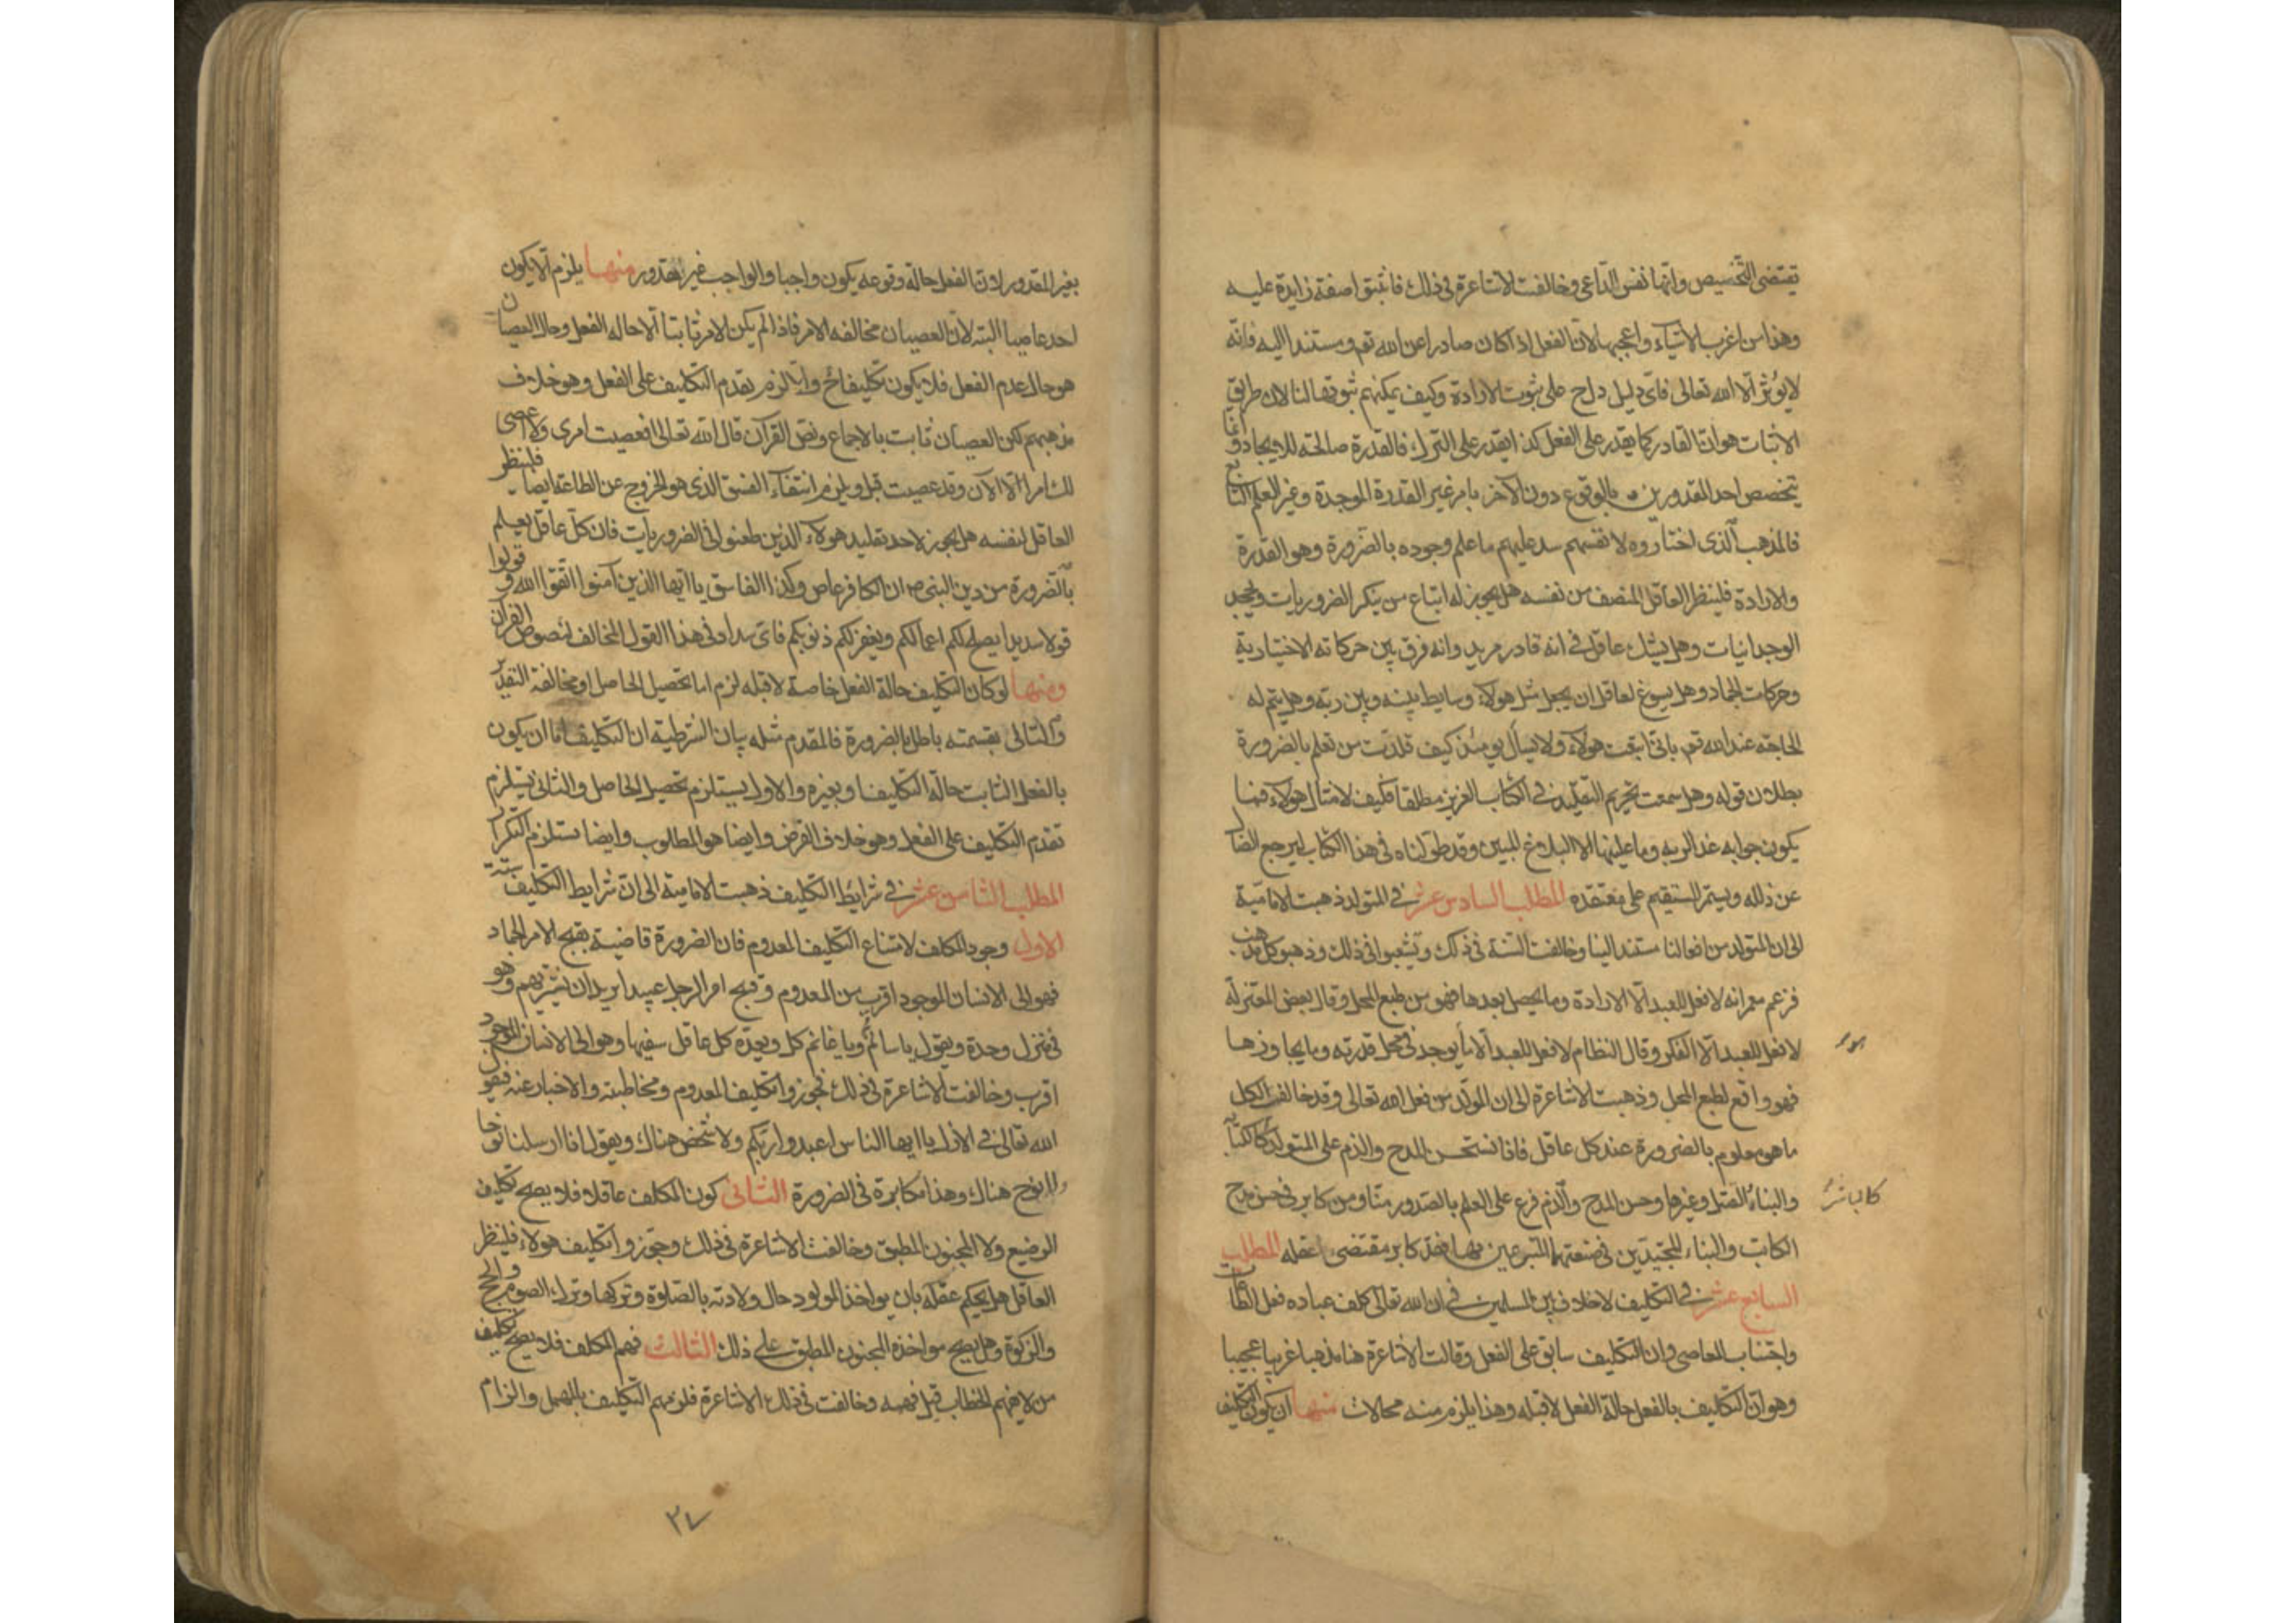 تقتضى التخصيص وانها نفس الداعى وخالفت الاشاعرة فى ذلك فاثبتوا صفة زايدة عليه
وهذا من اغرب الاشياء واعجبها لان الفعل اذا كان صادرا عن الله تعم ومستندا اليه فانه
لا يؤثر الا الله تعالى فاى دليل دلهم على ثبوت الارادة وكيف يمكنهم ثبوتها لنا لان طريق
الاثبات هو ان القادر كما يقدر على الفعل كذا يقدر على الترك فالقدرة صالحة للايجاد وانما
يتخصص احد المقدورين بالوقوع دون الاخر بامر غير القدرة الموجدة وغير العلم التابع
فالمذهب الذى اختاروه لانفسهم سد عليهم ما علم وجوده بالضرورة وهو القدرة
والارادة فلينظر العاقل المنصف من نفسه هل يجوز له اتباع من ينكر الضروريات ويجحد
الوجدانيات وهل يشك عاقل فى انه قادر مريد وانه فرق بين حركاته الاختيارية
وحركات الجماد وهل يسوغ لعاقل ان يجعل مثل هولاء وسايط بينه وبين ربه وهل يتم له
المحاجه عند الله تعم بانى اتبعت هولاء ولا يسأل يومئذ كيف قلدت من تعلم بالضرورة
بطلان قوله وهل سمعت تحريم التقليد فى الكتاب العزيز مطلقا فكيف لامثال هولاء فما
يكون جوابه غدا لربه وما علينا الا البلاغ المبين وقد طولناه فى هذا الكتاب ليرجع الضال
عن زلله ويستمر المستقيم على معتقده المطلب السادس عشر فى المتولد ذهبت الامامية
الى ان المتولد من افعالنا مستند الينا وخالفت السنة فى ذلك وتشعبوا فى ذلك وذهبوا كل مذهب
فزعم معمر انه لا فعل للعبد الا الارادة وما يحصل بعدها فهو من طبع المحل وقال بعض المعتزلة
لا فعل للعبد الا الفكر وقال النظام لا فعل للعبد الا ما يوجد فى محل قدرته وما يجاوزها
فهو واقع لطبع المحل وذهبت الاشاعرة الى ان المتولد من فعل الله تعالى وقد خالف الكل
ما هو معلوم بالضرورة عند كل عاقل فانا نستحسن المدح والذم على المتولد كالكتابة
كالمباشر
والبناء والقتل وغيرها وحسن المدح والذم فرع على العلم بالصدور منا ومن كابر فى حسن مدح
الكاتب والبناء المجيدين فى صنعتهما المتبرعين فيها فقد كابر مقتضى عقله المطلب
السابع عشر فى التكليف لا خلاف بين المسلمين فى ان الله تعالى كلف عباده فعل الطاعات
واجتناب المعاصى وان التكليف سابق على الفعل وقالت الاشاعرة هنا مذهبا غريبا عجيبا
وهو ان التكليف بالفعل حالة الفعل لا قبله وهذا يلزم منه محالات منها ان يكون التكليف
بغير المقدور لان الفعل حالة وقوعه يكون واجبا والواجب غير مقدور منها يلزم الا يكون
احد عاصيا البته لان العصيان مخالفه الامر فاذا لم يكن الامر ثابتا الا حاله الفعل وحال العصيان
هو حال عدم الفعل فلا يكون مكلفا ح والا لزم تقدم التكليف على الفعل وهو خلاف
مذهبهم لكن العصيان ثابت بالاجماع ونص القرآن قال الله تعالى افعصيت امرى ولا اعصى
لك امرا الآن وقد عصيت قبل ويلزم انتفاء الفسق الذى هو الخروج عن الطاعة ايضا فلينظر
العاقل لنفسه هل يجوز لاحد تقليد هولاء الذين طعنوا فى الضروريات فان كل عاقل يعلم
بالضرورة من دين النبى ص ان الكافر عاص وكذا الفاسق يا ايها الذين آمنوا اتقوا الله وقولوا
قولا سديدا يصلح لكم اعمالكم ويغفر لكم ذنوبكم فاى سداد فى هذا القول المخالف لنصوص القرآن
ومنها لو كان التكليف حالة الفعل خاصة لا قبله لزم اما تحصيل الحاصل او مخالفة التقدير
والتالى بقسميه باطل بالضرورة فالمقدم مثله بيان الشرطية ان التكليف اما ان يكون
بالفعل الثابت حالة التكليف او بغيره والاول يستلزم تحصيل الحاصل والثانى يستلزم
تقدم التكليف على الفعل وهو خلاف الفرض وايضا هو المطلوب وايضا يستلزم التكرار
المطلب الثامن عشر فى شرايط التكليف ذهبت الامامية الى ان شرايط التكليف ستة
الاول وجود المكلف لامتناع التكليف المعدوم فان الضرورة قاضية بقبح الامر الجماد
فهو الى الانسان الموجود اقرب من المعدوم وقبح امر الرجل عبيدا يريد ان يشتريهم وهو
فى منزل وحدة ويقول يا سالم ويا غانم كل ويعده كل عاقل سفيها وهو الى الانسان الموجود
اقرب وخالفت الاشاعرة فى ذلك فجوزوا تكليف المعدوم ومخاطبته والاخبار عنه فيقول
الله تعالى فى الازل يا ايها الناس اعبدوا ربكم ولا شخص هناك ويقول انا ارسلنا نوحا
ولا نوح هناك وهذا مكابرة فى الضرورة الثانى كون المكلف عاقلا فلا يصح تكليف
الرضيع ولا المجنون المطبق وخالفت الاشاعرة فى ذلك وجوزوا تكليف هولاء فلينظر
العاقل هل يحكم عقله بان يواخذ المولود حال ولادته بالصلوة وتركها وترك الصوم والحج
والزكوة وهل يصح مواخذة المجنون المطبق على ذلك الثالث فهم المكلف فلا يصح تكليف
من لا يفهم الخطاب قبل فهمه وخالفت فى ذلك الاشاعرة فلزمهم التكليف بالمهمل والزام
٣٧